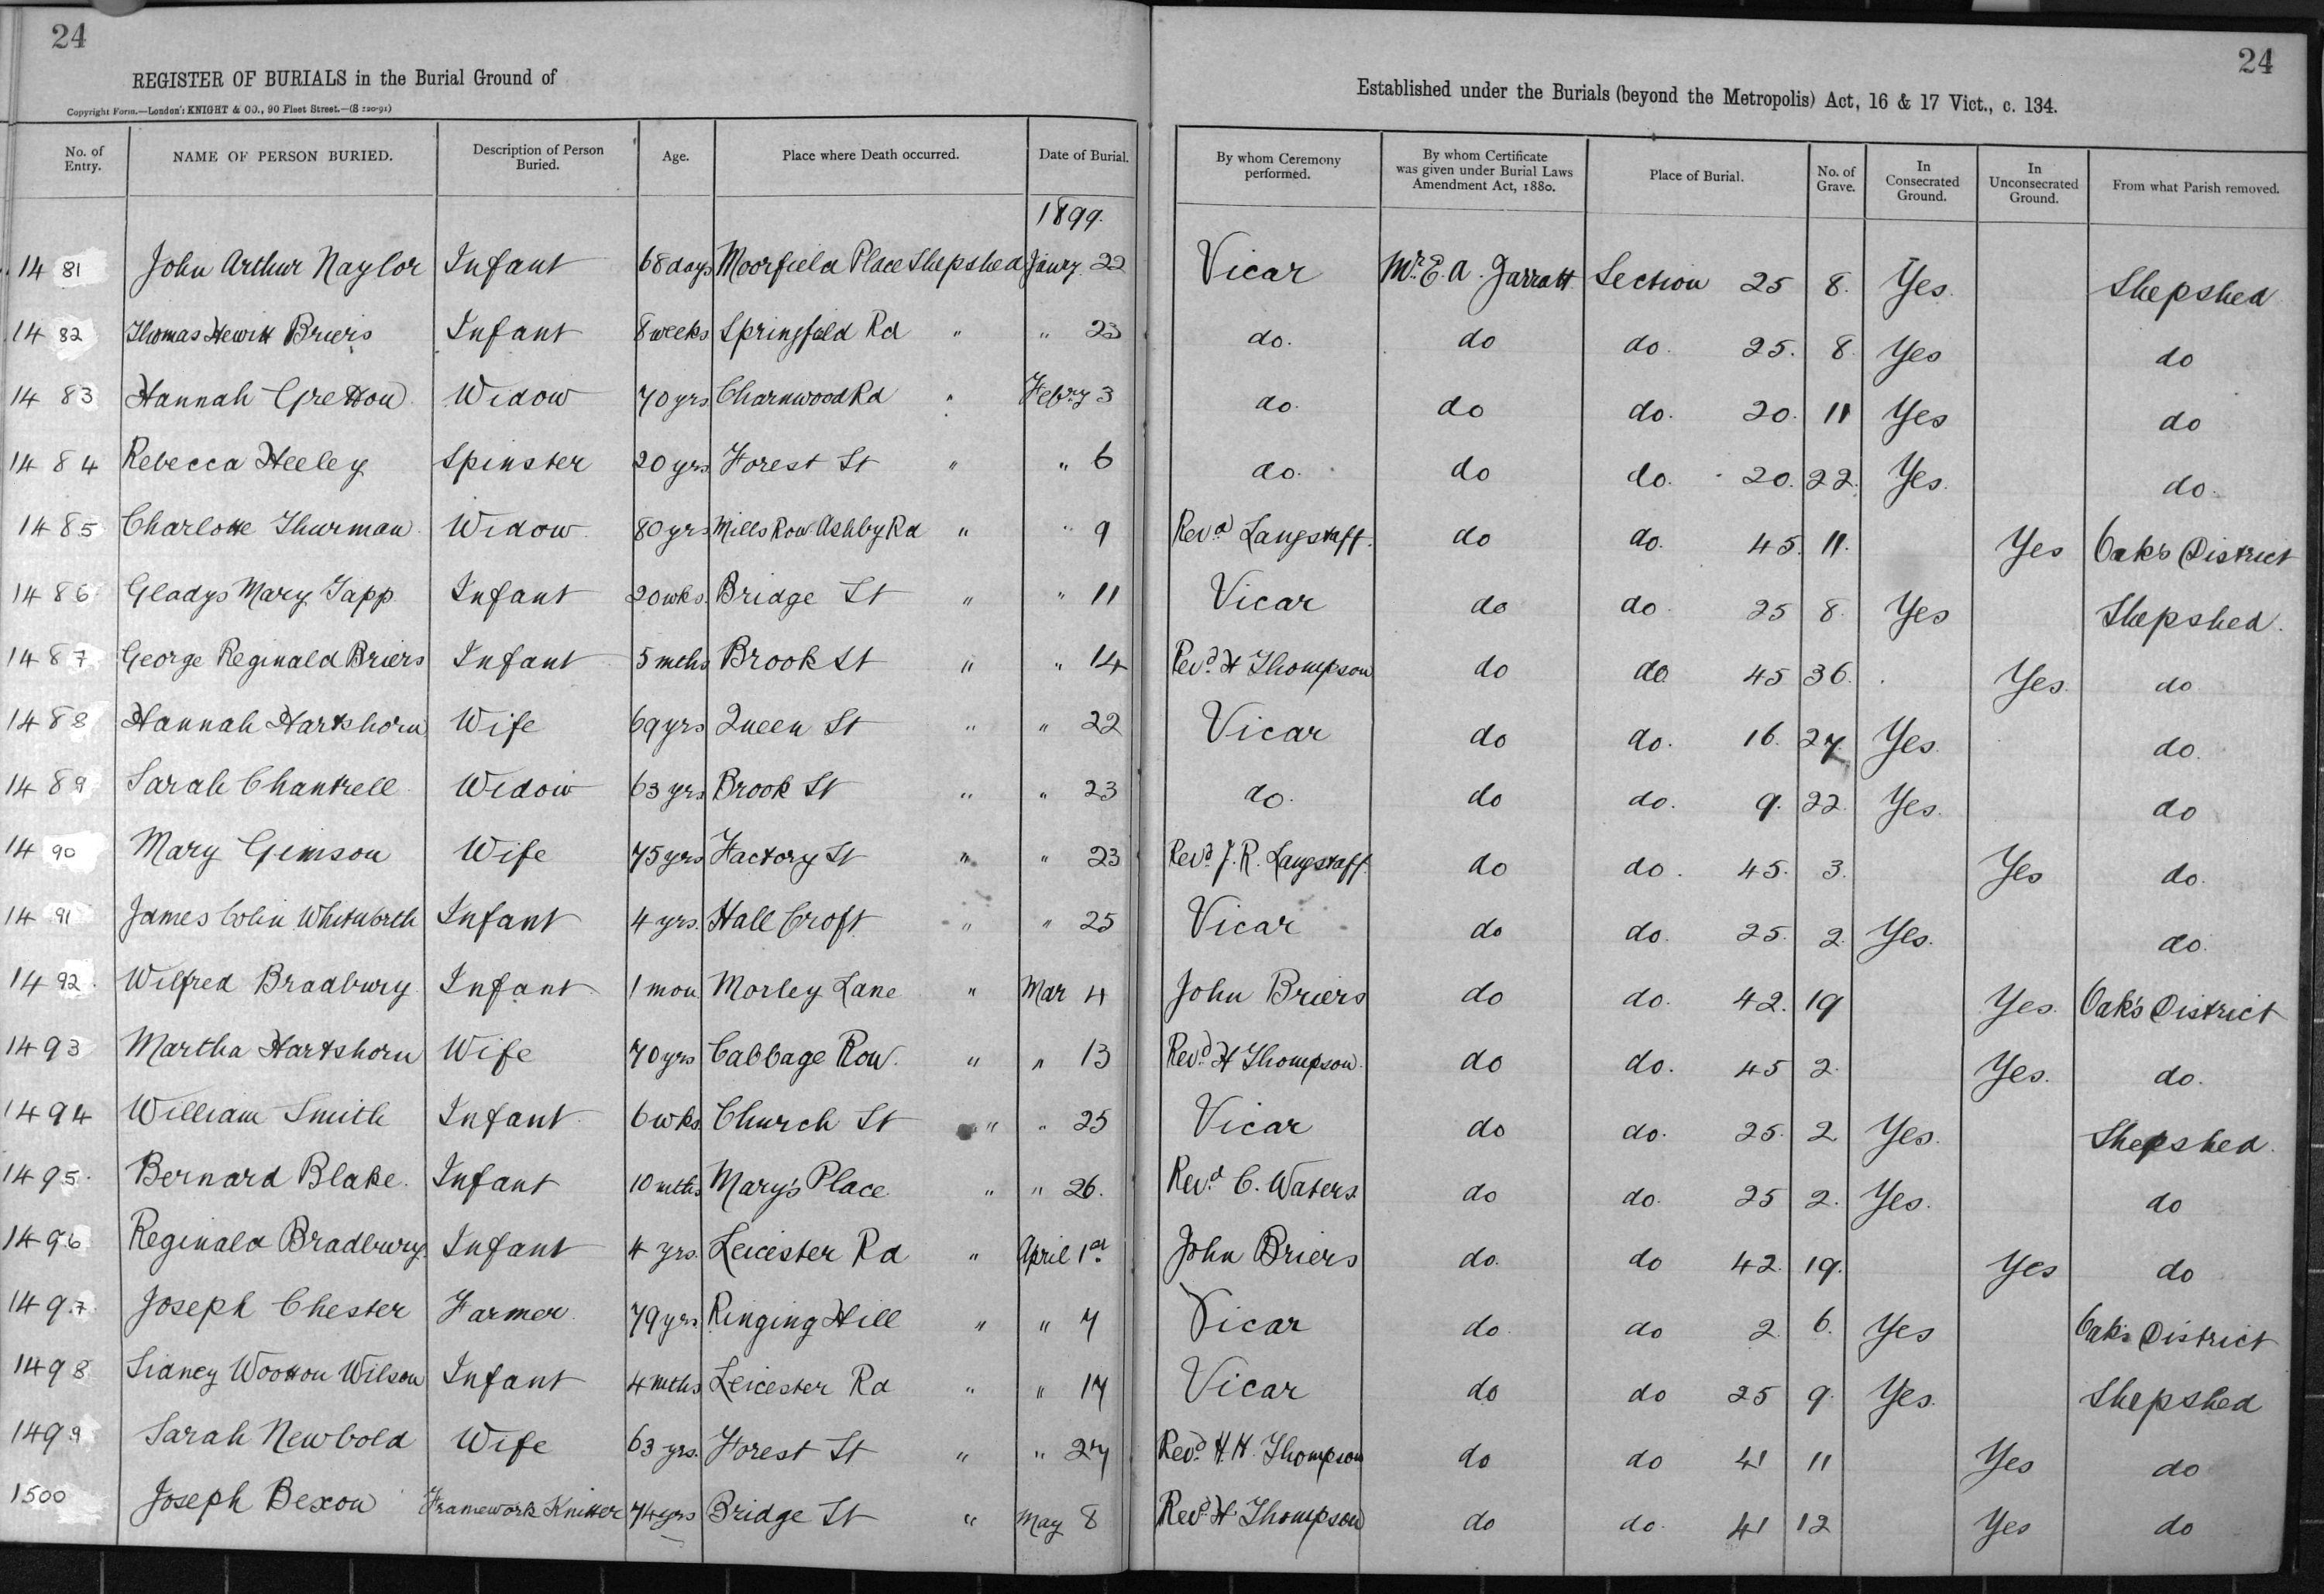 24
REGISTER OF BURIALS in the Burial Ground of
Copyright Form.—London: KNIGHT & CO., 90 Fleet Street.—(8 220-91)
No. of Entry. NAME OF PERSON BURIED. Description of Person Buried. Age. Place where Death occurred. Date of Burial.
1899.
1481 John Arthur Naylor Infant 68 days Moorfield Place Shepshed Janry. 22
1482 Thomas Hewitt Briers Infant 8 weeks Springfield Rd " " 23
1483 Hannah Gretton Widow 70 yrs Charnwood Rd " Febry 3
1484 Rebecca Heeley Spinster 20 yrs Forest St " " 6
1485 Charlotte Thurman Widow 80 yrs Mills Row Ashby Rd " " 9
1486 Gladys Mary Tapp Infant 20 wks. Bridge St " " 11
1487 George Reginald Briers Infant 5 mths Brook St " " 14
1488 Hannah Hartshorn Wife 69 yrs Queen St " " 22
1489 Sarah Chantrell Widow 63 yrs Brook St " " 23
1490 Mary Gimson Wife 75 yrs Factory St " " 23
1491 James Colin Whitworth Infant 4 yrs. Hall Croft " " 25
1492. Wilfred Bradbury Infant 1 mon Morley Lane " Mar 4
1493 Martha Hartshorn Wife 70 yrs Cabbage Row. " " 13
1494 William Smith Infant 6 wks Church St " " 25
1495. Bernard Blake. Infant 10 mths Mary's Place " " 26.
1496 Reginald Bradbury. Infant 4 yrs. Leicester Rd " April 1st
1497 Joseph Chester Farmer 79 yrs. Ringing Hill " " 7
1498 Sidney Wootton Wilson Infant 4 mths Leicester Rd " " 17
1499 Sarah Newbold Wife 63 yrs. Forest St " " 27
1500 Joseph Bexon Framework Knitter 74 yrs Bridge St " May 8
24
Established under the Burials (beyond the Metropolis) Act, 16 & 17 Vict., c. 134.
By whom Ceremony performed. By whom Certificate was given under Burial Laws Amendment Act, 1880. Place of Burial. No. of Grave. In Consecrated Ground. In Unconsecrated Ground. From what Parish removed.
Vicar Mr. E. A. Jarratt Section 25 8. Yes. Shepshed
do. do do. 25. 8. Yes do
do. do do. 20. 11 Yes do
do. do do. 20. 22. Yes. do.
Revd Langstaff. do do. 45. 11. Yes Oaks District
Vicar do do 25 8. Yes Shepshed.
Revd. H Thompson do do 45 36. Yes. do
Vicar do do. 16. 27. Yes. do.
do. do do. 9. 22. Yes. do
Revd. J. R. Langstaff. do do. 45. 3. Yes do.
Vicar do do. 25. 2. Yes. do.
John Briers do do. 42. 19 Yes. Oak's District
Revd. H Thompson. do do. 45 2. Yes. do.
Vicar do do. 25. 2 Yes. Shepshed.
Revd. C. Waters do do. 25 2. Yes. do
John Briers do. do 42. 19. Yes do
Vicar do. do 2. 6. Yes Oaks District
Vicar do do 25 9. Yes. Shepshed
Revd. H. H. Thompson do do 41 11 Yes do
Revd H. Thompson do do. 41 12 Yes do